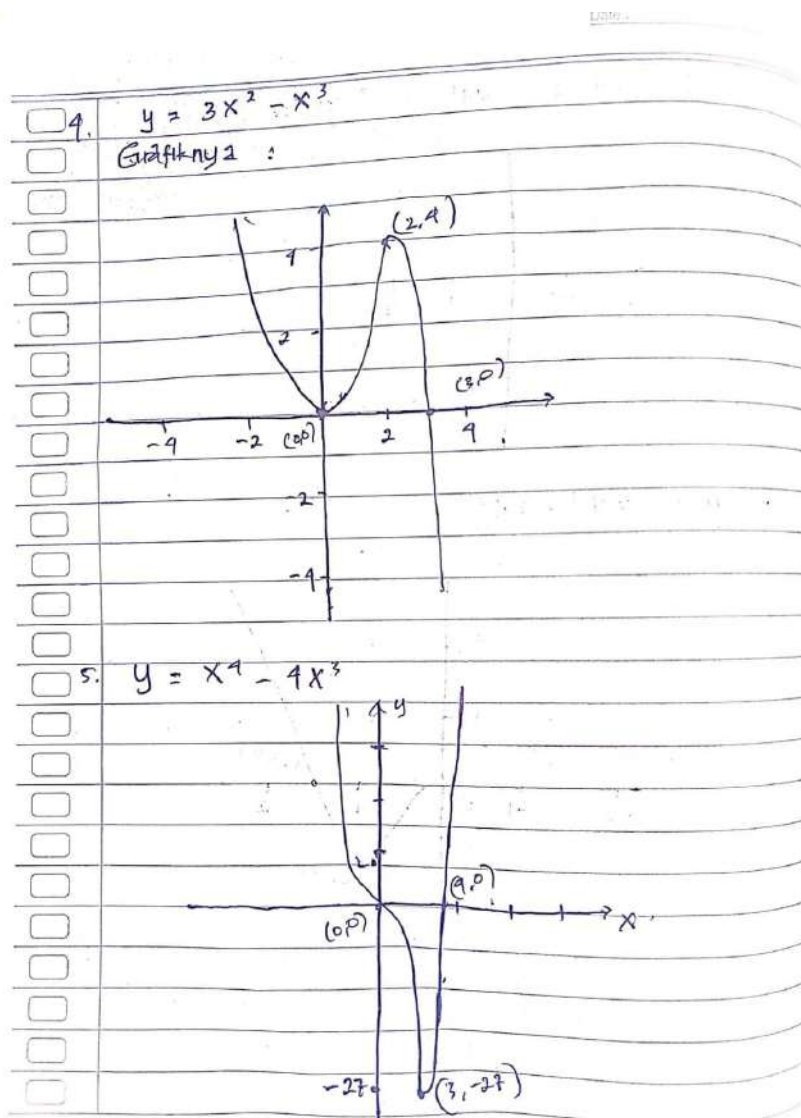 4. y = 3x² - x³
Grafiknya :
(2,4)
4
2
(3,0)
-4 -2 (0,0) 2 4
-2
-4
5. y = x⁴ - 4x³
y
2
(4,0)
(0,0)
x
-27 (3,-27)